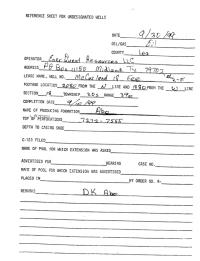 REFERENCE SHEET FOR UNDESIGNATED WELLS
DATE 9/25/99
OIL/GAS Oil
COUNTY Lea
OPERATOR Resources LLC
ADDRESS PO Box 11150 Midland Tx 79702
LEASE NAME, WELL NO. McCasland 18 Fee
FOOTAGE LOCATION FROM THE N LINE AND FROM THE W LINE
SECTION 18 TOWNSHIP 20s RANGE 39e
COMPLETION DATE
NAME OF PRODUCING FORMATION Abo
TOP OF PERFORATIONS
DEPTH TO CASING SHOE
C-123 FILED
NAME OF POOL FOR WHICH EXTENSION WAS ASKED
ADVERTISED FOR HEARING CASE NO.
NAME OF POOL FOR WHICH EXTENSION WAS ADVERTISED
PLACED IN BY ORDER NO. R-
REMARKS DK Abo